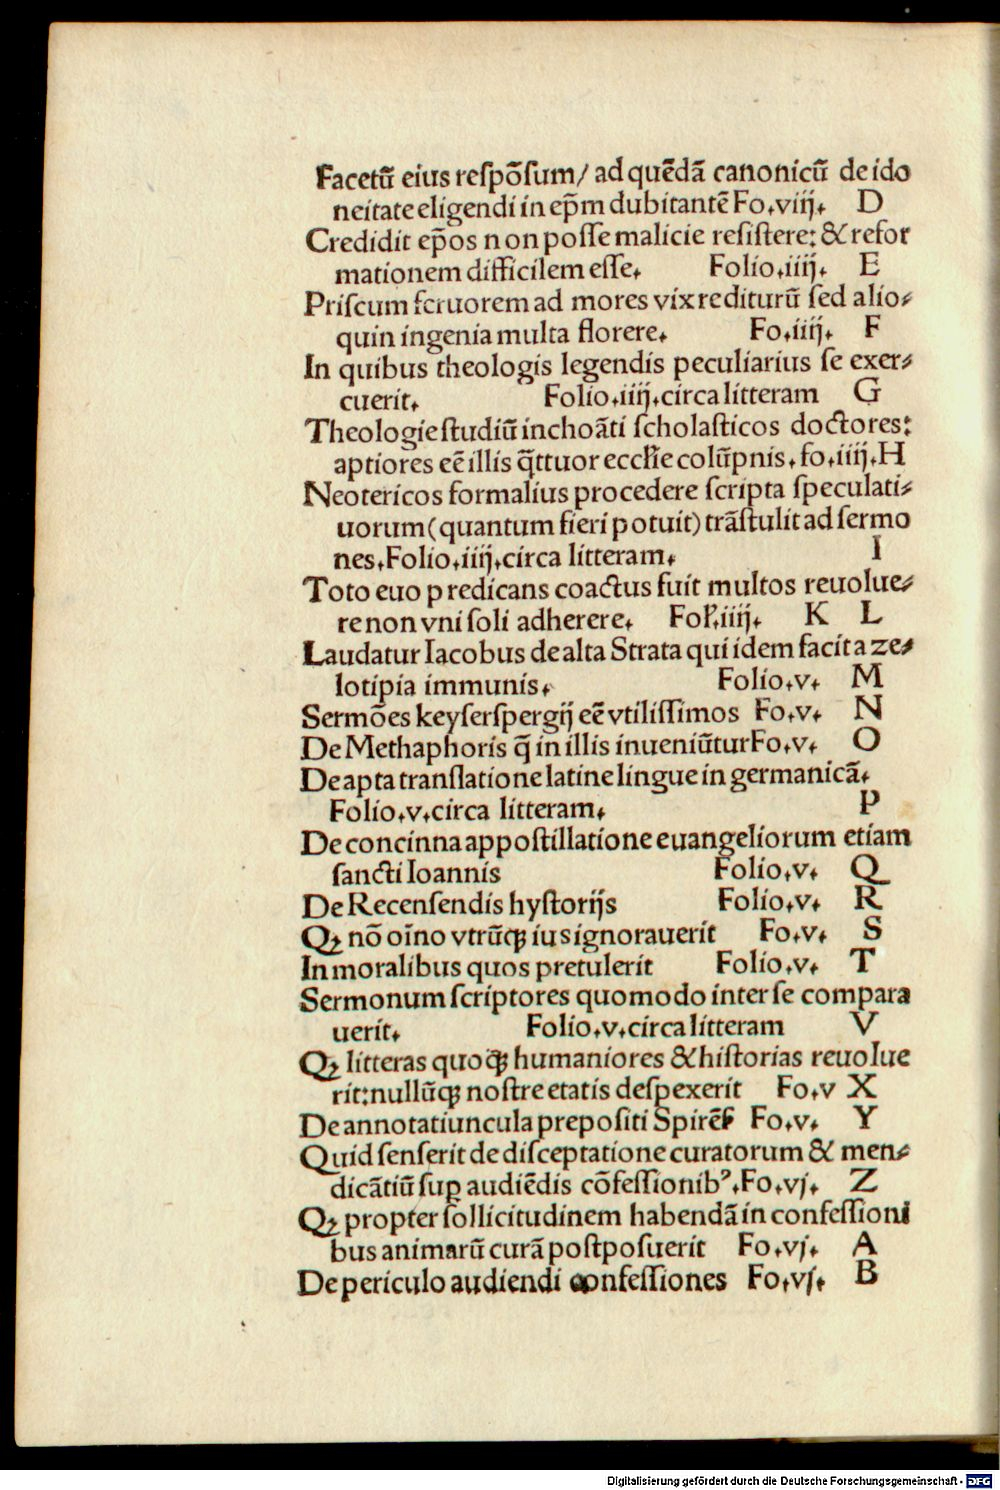 Facetū eius reſpōſum/ ad quēdā canonicū de ido
neitate eligendi in ep̄m dubitantē Fo.viij. D
Credidit ep̄os non poſſe malicie reſiſtere: & refor
mationem difficilem eſſe. Folio.iiij. E
Priſcum feruorem ad mores vix rediturū ſed alio⸗
quin ingenia multa florere. Fo.iiij. F
In quibus theologis legendis peculiarius ſe exer⸗
cuerit. Folio.iiij.circa litteram G
Theologie ſtudiū inchoāti ſcholaſticos doctores:
aptiores eē illis q̄ttuor eccl̄ie colūpnis.fo.iiij.H
Neotericos formalius procedere ſcripta ſpeculati⸗
uorum (quantum fieri potuit) trāſtulit ad ſermo
nes.Folio.iiij.circa litteram. I
Toto euo predicans coactus fuit multos reuolue⸗
re non vni ſoli adherere. Fol̕.iiij. K L
Laudatur Iacobus de alta Strata qui idem facit a ze⸗
lotipia immunis. Folio.v. M
Sermōes keyſerſpergij eē vtiliſſimos Fo.v. N
De Methaphoris q̄ in illis inueniūtur Fo.v. O
De apta translatione latine lingue in germanicā.
Folio.v.circa litteram. P
De concinna appoſtillatione euangeliorum etiam
ſancti Ioannis Folio.v. Q
De Recenſendis hyſtorijs Folio.v. R
Qꝫ nō oīno vtrūqꝫ ius ignorauerit Fo.v. S
In moralibus quos pretulerit Folio.v. T
Sermonum ſcriptores quomodo inter ſe compara
uerit. Folio.v.circa litteram V
Qꝫ litteras quoqꝫ humaniores & hiſtorias reuolue
rit: nullūqꝫ noſtre etatis deſpexerit Fo.v X
De annotatiuncula prepoſiti Spirēſ Fo.v. Y
Quid ſenſerit de diſceptatione curatorum & men⸗
dicātiū ſuꝑ audiēdis cōfeſſionibꝰ.Fo.vj. Z
Qꝫ propter ſollicitudinem habendā in confeſſioni
bus animarū curā poſtpoſuerit Fo.vj. A
De periculo audiendi confeſſiones Fo.vj. B
Digitalisierung gefördert durch die Deutsche Forschungsgemeinschaft - DFG